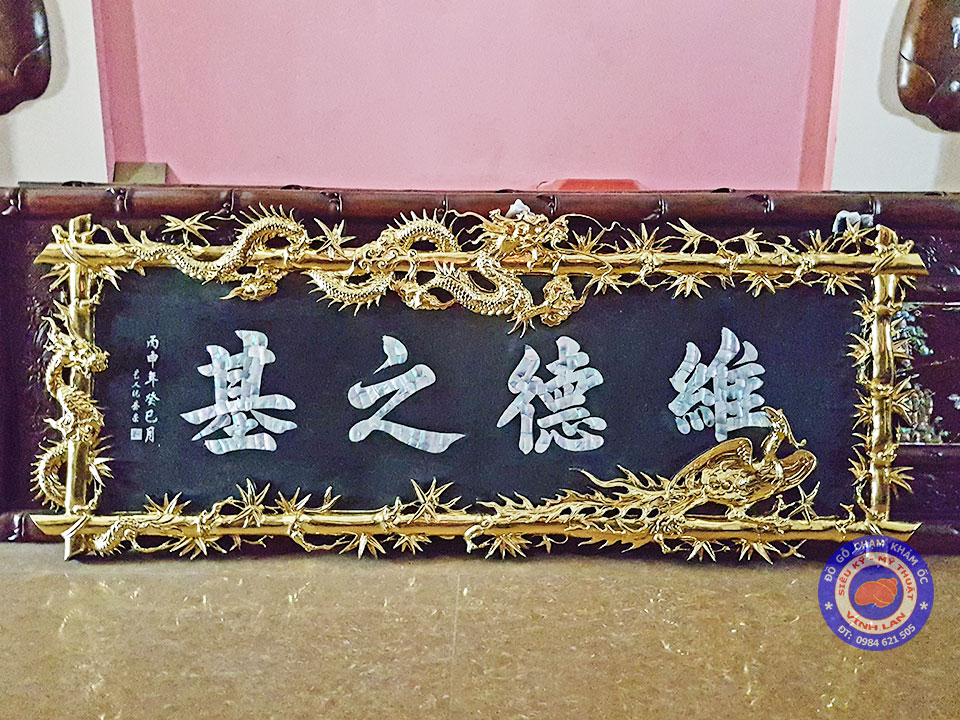 維德之基
丙申年癸巳月
ĐỒ GỖ CHẠM KHẢM ỐC
SIÊU KỸ - MỸ THUẬT
VINH LAN
ĐT: 0984 621 505